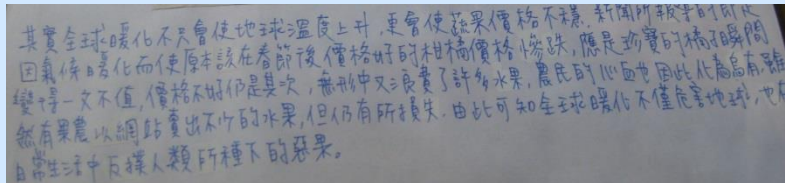 其實全球暖化不只會使地球溫度上升,更會使蔬果價格不穩.新聞所報導的即是
因氣候暖化而使原本該在春節後價格好的柑橘價格慘跌,應是珍寶的橘子瞬間
變得一文不值,價格不好仍是其次,無形中又浪費了許多水果,農民的心血也因此化為烏有,雖
然有果農以網站賣出不少的水果,但仍有所損失.由此可知全球暖化不僅危害地球,也在
日常生活中反撲人類所種下的惡果。